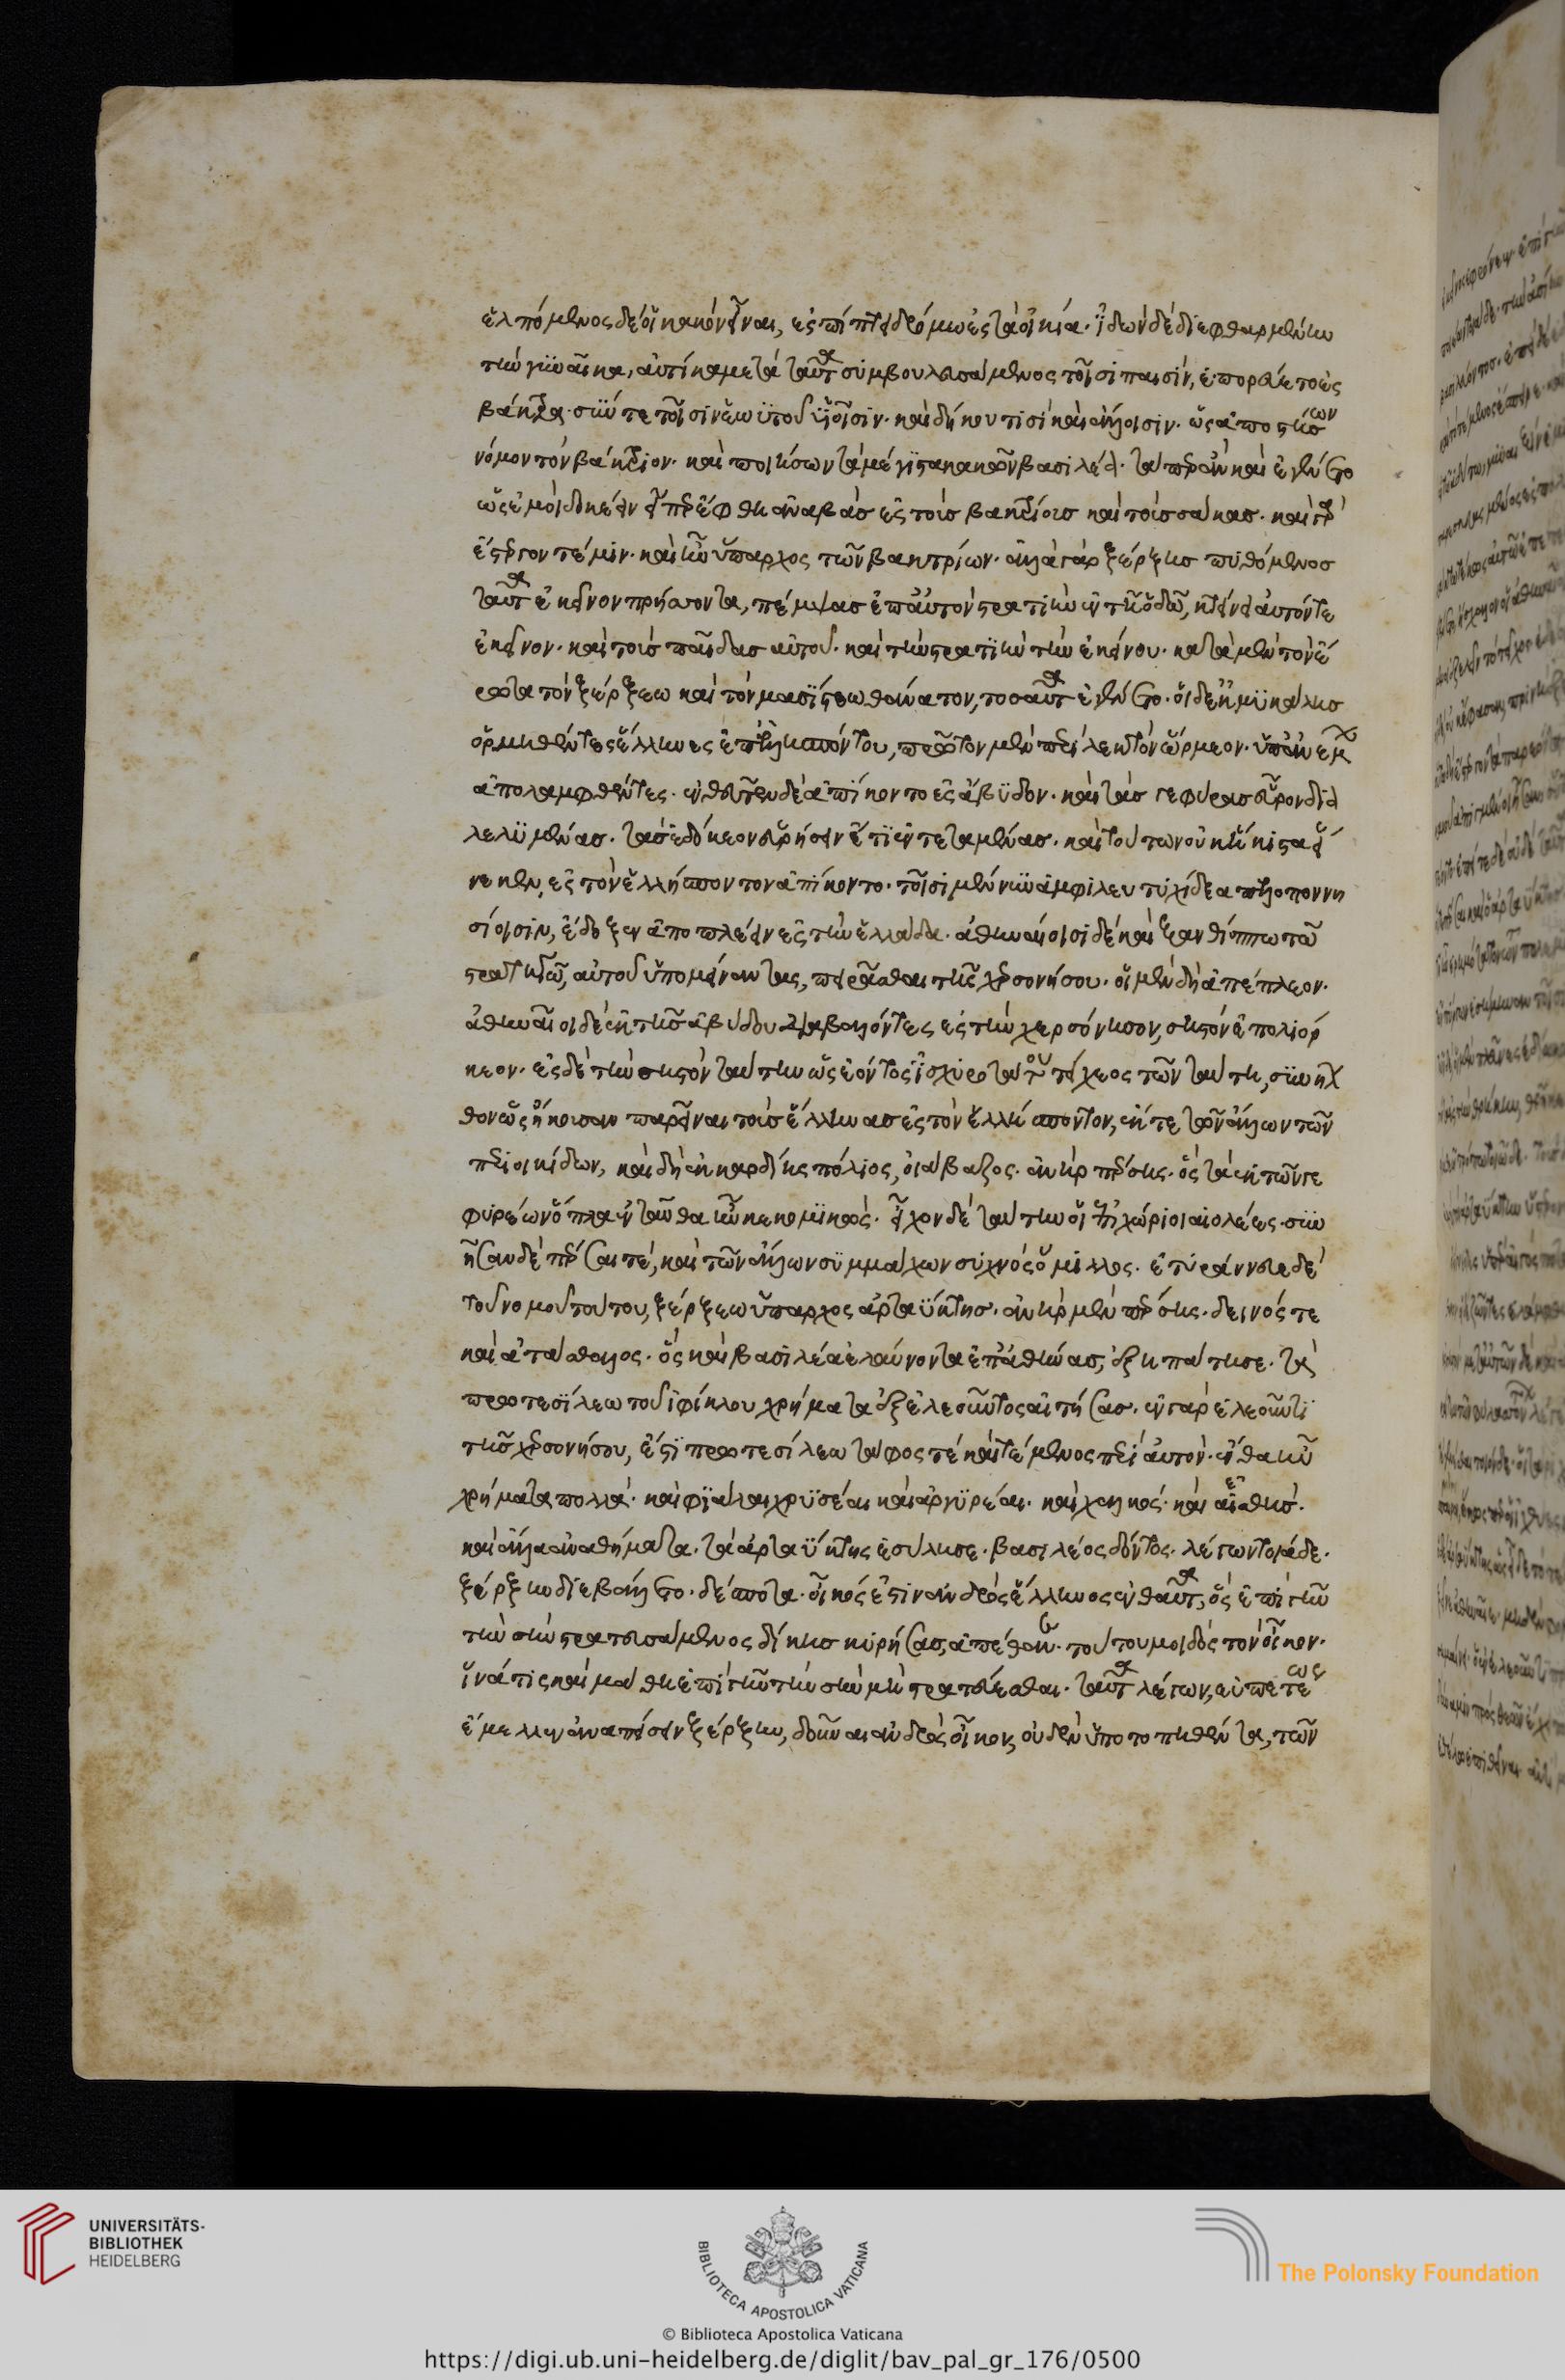 ἐλπόμενος δέ οἱ κακὸν εἶναι, ἐσπίπτει δρόμῳ ἐς τὰ οἰκία. ἰδὼν δὲ διεφθαρμένην
τὴν γυναῖκα, αὐτίκα μετὰ ταῦτα συμβουλευσάμενος τοῖσι παισίν, ἐπορεύετο ἐς
βάκτρα. σύν τε τοῖσιν ἑωυτοῦ υἱοῖσιν. καὶ δή κου τισὶ καὶ ἄλλοισιν. ὡς ἀποστήσων
νόμον τὸν βάκτριον. καὶ ποιήσων τὰ μέγιστα κακῶν βασιλέα. τά περ ἂν καὶ ἐγένετο
ὡς ἐμοὶ δοκέειν εἴπερ ἔφθη ἀναβὰς ἐς τοὺς βακτρίους καὶ τοὺς σάκας. καὶ γὰρ
ἔστεργόν τέ μιν. καὶ ἦν ὕπαρχος τῶν βακτρίων. ἀλλὰ γὰρ ξέρξης πυθόμενος
ταῦτα ἐκεῖνον πρήσσοντα, πέμψας ἐπ' αὐτὸν στρατιὴν ἐν τῇ ὁδῷ, κτείνει αὐτόν τε
ἐκεῖνον. καὶ τοὺς παῖδας αὐτοῦ. καὶ τὴν στρατιὴν τὴν ἐκείνου. κατὰ μὲν τὸν ἔ
ρωτα τὸν ξέρξεω καὶ τὸν μασίστεω θάνατον, τοσαῦτα ἐγένετο. οἱ δὲ ἐκ μυκάλης
ὁρμηθέντες ἕλληνες ἐπ' ἑλλησπόντου, πρῶτον μὲν περὶ λεκτὸν ὥρμεον. ὑπὸ ἀνέμων
ἀπολαμφθέντες. ἐνθεῦτεν δὲ ἀπίκοντο ἐς ἄβυδον. καὶ τὰς γεφύρας εὗρον δια
λελυμένας. τὰς ἐδόκεον εὑρήσειν ἔτι ἐντεταμένας. καὶ τούτων οὐκ ἥκιστα εἵ
νεκεν, ἐς τὸν ἑλλήσποντον ἀπίκοντο. τοῖσι μὲν νῦν ἀμφὶ λευτυχίδεα πελοποννη
σίοισιν, ἔδοξεν ἀποπλέειν ἐς τὴν ἑλλάδα. ἀθηναίοισι δὲ καὶ ξανθίππῳ τῷ
στρατηγῷ, αὐτοῦ ὑπομείναντας, πειρᾶσθαι τῆς χερσονήσου. οἱ μὲν δὴ ἀπέπλεον.
ἀθηναῖοι δὲ ἐκ τῆς ἀβύδου διαβαλόντες ἐς τὴν χερσόνησον, σηστὸν ἐπολιόρ
κεον. ἐς δὲ τὴν σηστὸν ταύτην ὡς ἐόντος ἰσχυροτάτου τείχεος τῶν ταύτῃ, συνῆλ
θον ὡς ἤκουσαν παρεῖναι τοὺς ἕλληνας ἐς τὸν ἑλλήσποντον, ἔκ τε τῶν ἄλλων τῶν
περιοικίδων, καὶ δὴ ἐκ καρδίης πόλιος, οἰόβαζος. ἀνὴρ πέρσης. ὃς τὰ ἐκ τῶν γε
φυρέων ὅπλα ἐνταῦθα ἦν κεκομικώς. εἶχον δὲ ταύτην οἱ ἐπιχώριοι αἰολέες. συν
ῆσαν δὲ πέρσαι τέ, καὶ τῶν ἄλλων συμμάχων συχνὸς ὅμιλλος. ἐτυράννευε δὲ
τοῦ νομοῦ τούτου, ξέρξεω ὕπαρχος ἀρταΰκτης. ἀνὴρ μὲν πέρσης. δεινός τε
καὶ ἀτάσθαλος. ὃς καὶ βασιλέα ἐλαύνοντα ἐπ' ἀθήνας, ἐξηπάτησε. τὰ
πρωτεσίλεω τοῦ ἰφίκλου χρήματα ἐξ ἐλεοῦντος αἰτήσας. ἐν γὰρ ἐλεοῦντι
τῆς χερσονήσου, ἐστὶ πρωτεσίλεω τάφος τέ καὶ τέμενος περὶ αὐτόν. ἔνθα ἦν
χρήματα πολλά. καὶ φιάλαι χρυσέαι καὶ ἀργυρέαι. καὶ χαλκός. καὶ ἐσθής.
καὶ ἄλλα ἀναθήματα. τὰ ἀρταΰκτης ἐσύλησε. βασιλέος δόντος. λέγων τοιάδε.
ξέρξην διεβάλλετο. δέσποτα. οἶκός ἐστιν ἀνδρὸς ἕλληνος ἐνθαῦτα, ὃς ἐπὶ γῆν
τὴν σὴν στρατευσάμενος δίκης κυρήσας, ἀπέθανε. τούτου μοι δὸς τὸν οἶκον.
ἵνα τις καὶ μάθῃ ἐπὶ γῆν τὴν σὴν μὴ στρατεύεσθαι. ταῦτα λέγων, εὐπετέως
ἔμελλεν ἀναπείσειν ξέρξην, δοῦναι ἀνδρὸς οἶκον, οὐδὲν ὑποτοπηθέντα, τῶν
UNIVERSITÄTS-
BIBLIOTHEK
HEIDELBERG
BIBLIOTECA APOSTOLICA VATICANA
The Polonsky Foundation
© Biblioteca Apostolica Vaticana
https://digi.ub.uni-heidelberg.de/diglit/bav_pal_gr_176/0500